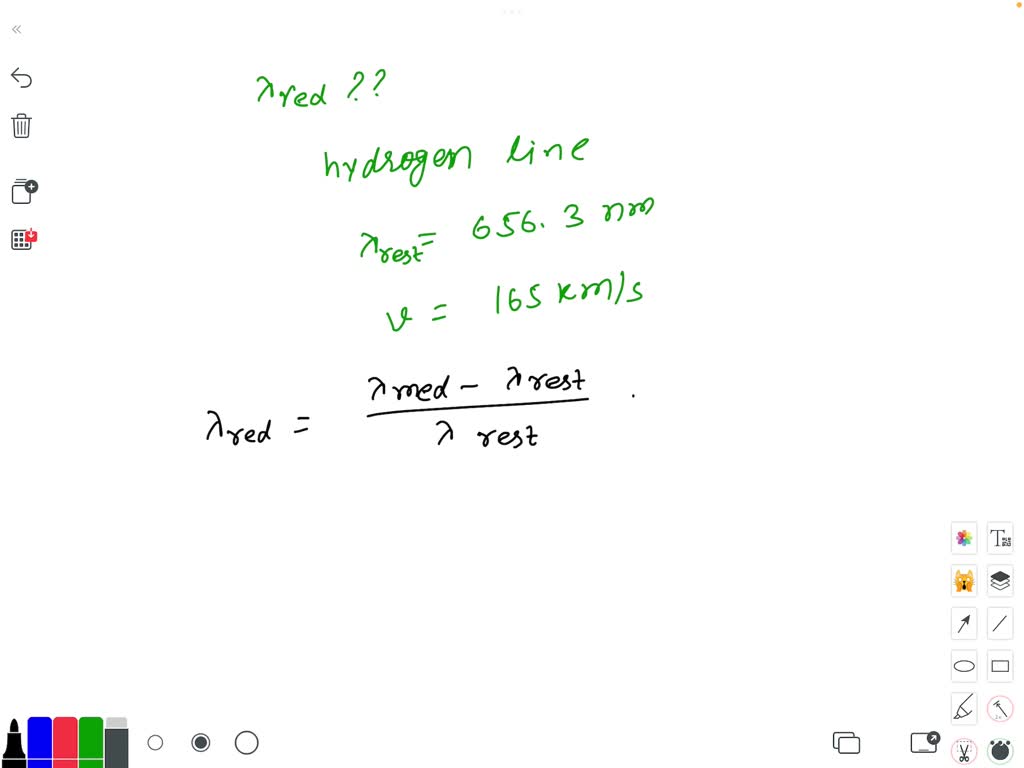 λred ??
hydrogen line
λrest = 656.3 nm
v = 165 km/s
λred = λmed - λrest / λ rest